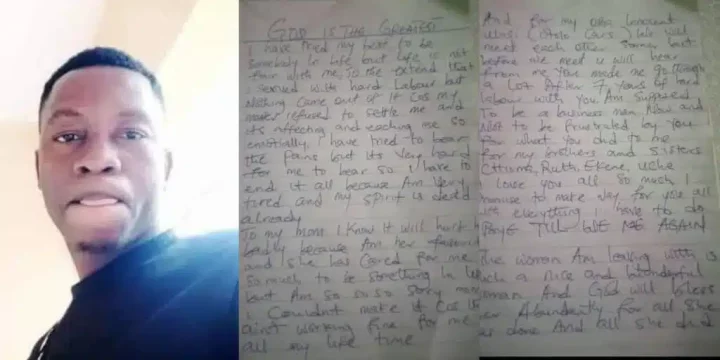 GOD IS THE GREATEST
I have tried my best to be
somebody in life but life is not
fair with me, so the extend that
I served with hard Labour but
Nothing came out of it cos my
refused to settle me and
its affecting and me so
emotionally, I have tried to bear
the pains but its very hard
for me to bear so I have to
end it all because Am very
tired and my spirit is dead
already
To my mom I know it will hurt
badly because Am her
and she has cared for me
so much to be something in life
but Am so so so sorry
I couldnt make it cos life
ain't working fine for me
all my life time
And for my Innocent
We will
meet each other but
before we meet u will hear
from me You made me go through
a lot After 7 years of hard
labour with you Am supposed
To be a business man Now and
Not to be frustrated by you
for what you did to me
for my brothers and sisters
Ruth, Ekene, Uche
I Love you all so much I
promise to make you all
everything I have to do
BYE TILL WE AGAIN
The woman Am with is
such a nice and wonderful
woman And God will bless
her Abundantly for all she
has done And all she did